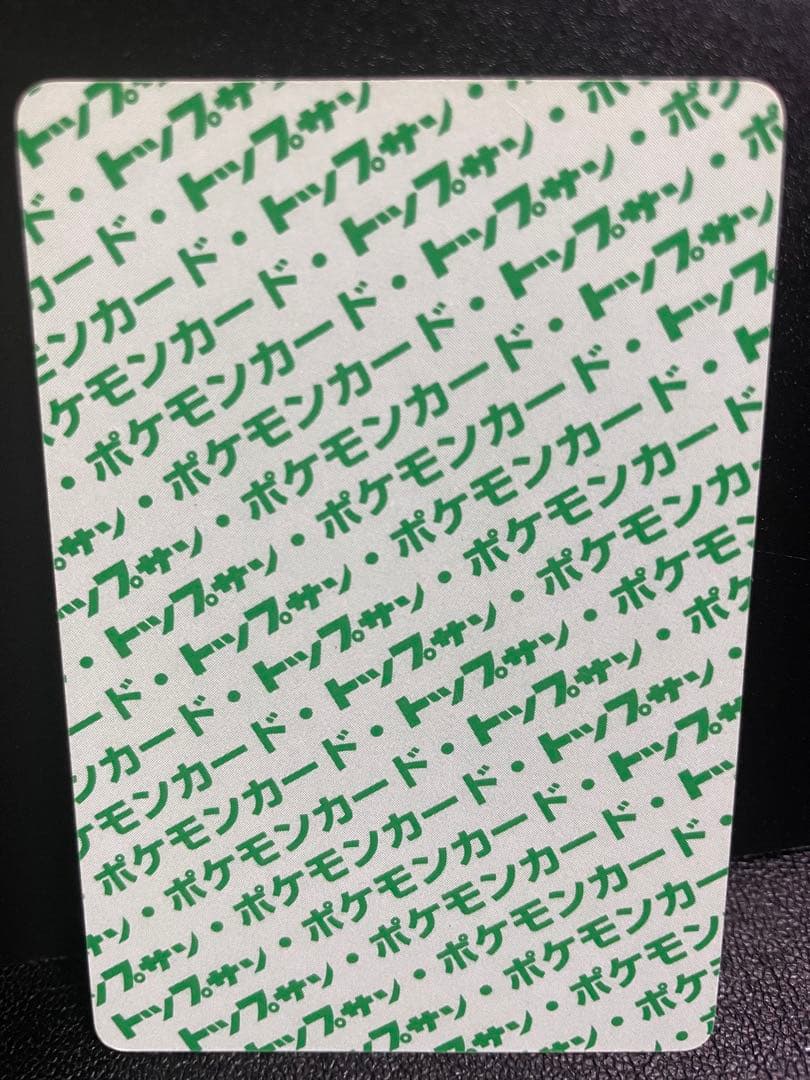 トップ
ド・トップサ
カード・トップサン
ンカード・トップサン・
ケモンカード・トップサン・ポ
・ポケモンカード・トップサン・ポケ
サン・ポケモンカード・トップサン・ポ
ップサン・ポケモンカード・トップサン
トップサン・ポケモンカード・トップ
・トップサン・ポケモンカード・ト
ード・トップサン・ポケモンカード
ンカード・トップサン・ポケモンカ
ケモンカード・トップサン・ポケモン
ポケモンカード・トップサン・ポケ
サン・ポケモンカード・トップサン・
プサン・ポケモンカード・トップサ
トップサン・ポケモンカード・トッ
トップサン・ポケモンカード・
ップサン・ポケモンカード・
プサン・ポケモンカー
サン・ポケモン
・ポケ